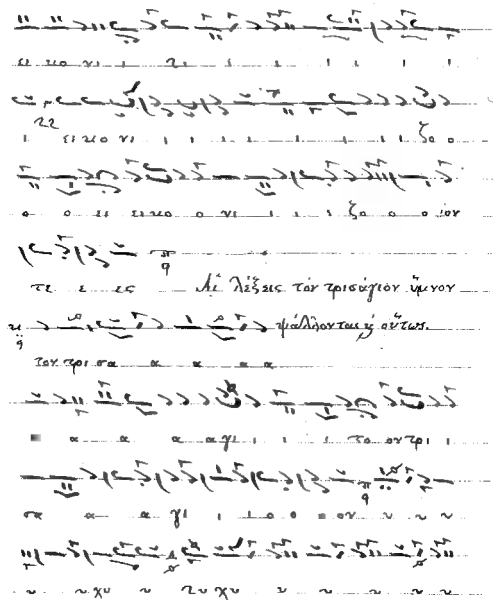 ει κο νι ι ι ι ι ι ι ι
ι ει κο νι ι ι ι ι ι ι ι ζο ο
ο ο ει ει κο ο νι ι ι ι ζο ο ο
τε ε ες Αἱ λέξεις τὸν τρισάγιον ὕμνον
ψάλλονται ϗ οὕτως.
τον τρι σα α α α α
α α α α γι ι ι ι το ον τρι ι
σα α α γι ι ι ο ο ο ον υ υ υ
υ υ χυ υ χυ υ υ υ υ υ